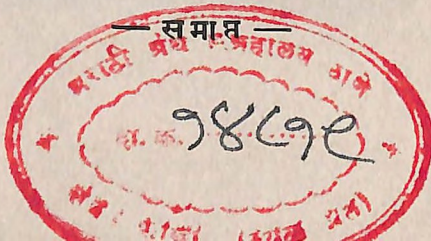 — समाप्त —
मराठी ग्रंथ संग्रहालय ठाणे
दा. क. १४८१९